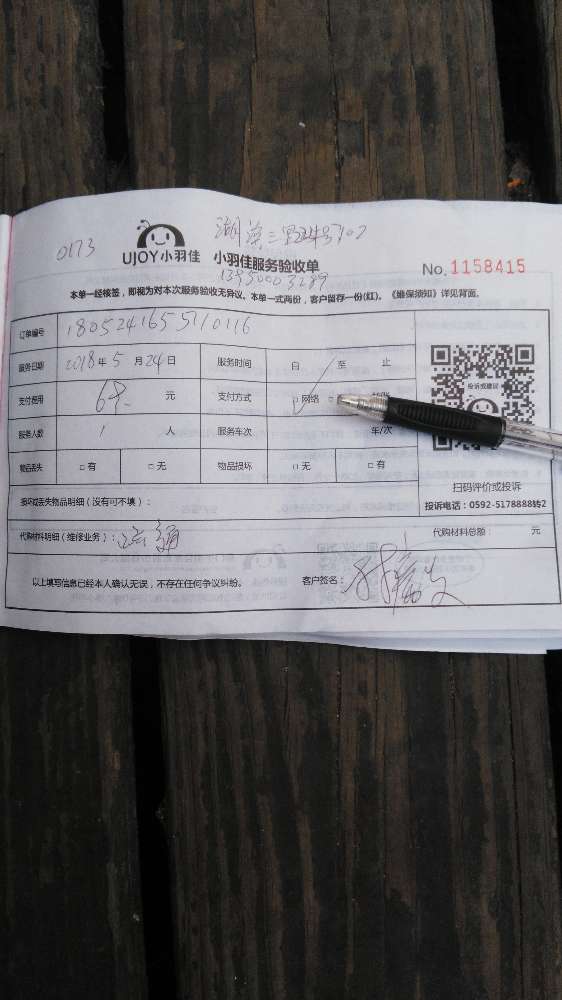 0173
UJOY小羽佳 小羽佳服务验收单
No. 1158415
本单一经核签，即视为对本次服务验收无异议。本单一式两份，客户留存一份(红)。《维保须知》详见背面。
订单编号 1805241655110116
服务日期 2018年5月24日 服务时间 自 至 止
支付费用 68. 元 支付方式 □网络 □
服务人数 1 人 服务车次 车/次
物品丢失 □有 □无 物品损坏 □无 □有
投诉或建议
扫码评价或投诉
投诉电话：0592-5178888转2
损坏或丢失物品明细（没有可不填）：
代购材料明细（维修业务）： 代购材料总额： 元
以上填写信息已经本人确认无误，不存在任何争议纠纷。 客户签名：